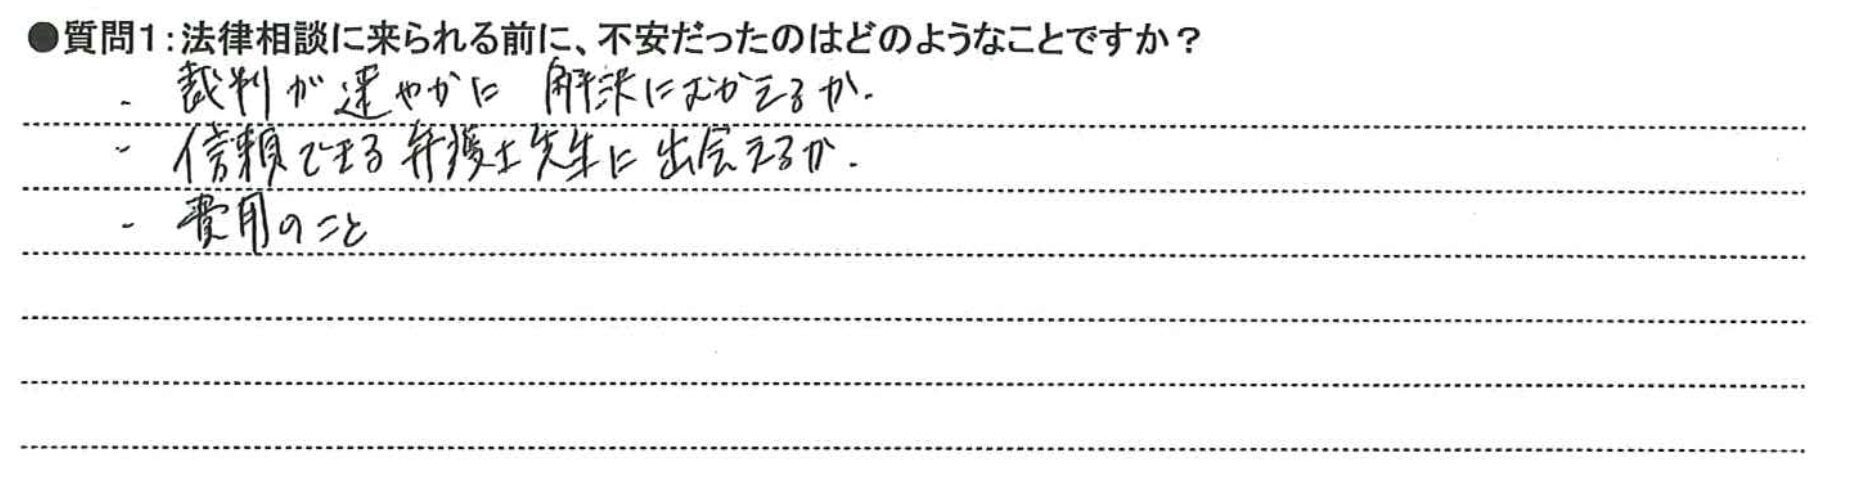 ●質問1:法律相談に来られる前に、不安だったのはどのようなことですか？
- 裁判が速やかに 解決にむかえるか.
- 信頼できる弁護士先生に出会えるか.
- 費用のこと